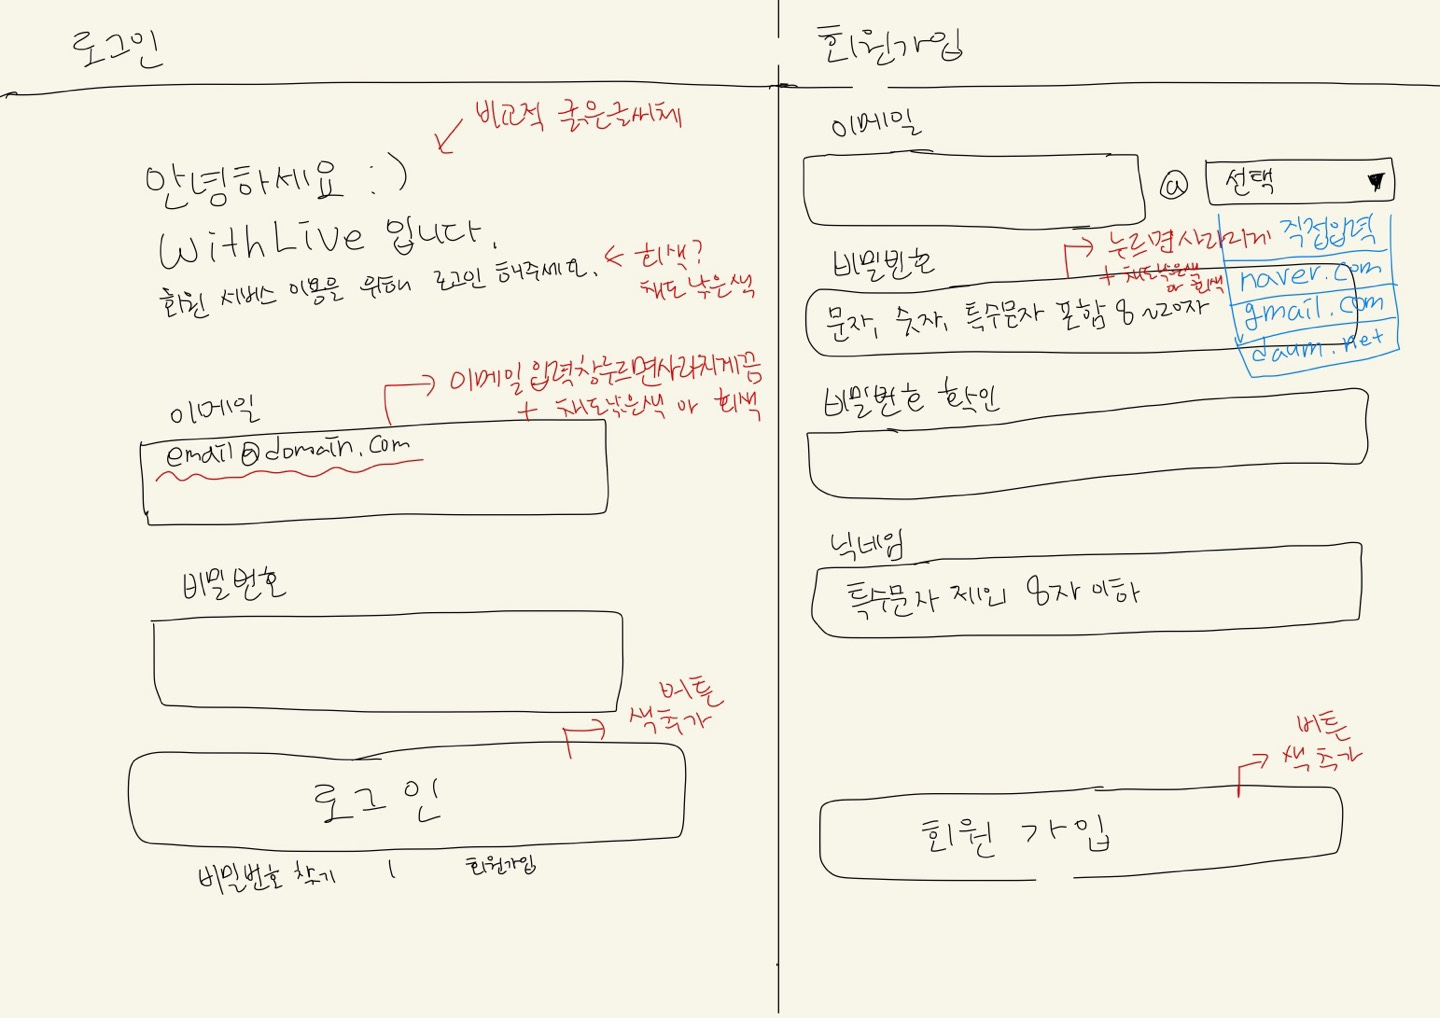 로그인
비교적 굵은글씨체
안녕하세요 :)
WithLive 입니다.
회원 서비스 이용을 위해 로그인 해주세요.
< 회색?
채도 낮은색
이메일 입력창누르면사라지게끔
+ 채도낮은색 or 회색
이메일
email@domain.com
비밀번호
버튼
색추가
로그인
비밀번호 찾기 | 회원가입
회원가입
이메일
@
선택 ▼
직접입력
naver.com
gmail.com
daum.net
누르면사라지게
+ 채도낮은색
or 회색
비밀번호
문자, 숫자, 특수문자 포함 8~20자
비밀번호 확인
닉네임
특수문자 제외 8자 이하
버튼
색 추가
회원 가입